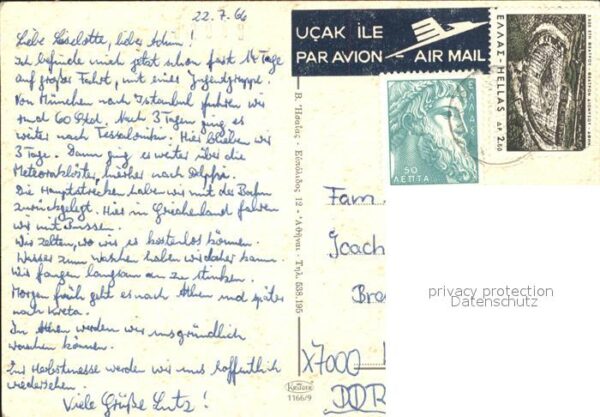 22.7.66
Liebe Liselotte, lieber Achim!
Ich befinde mich jetzt schon fast 14 Tage
auf großer Fahrt, mit einer Jugendgruppe.
Von München nach Istanbul fuhren wir
rund 60 Std. Nach 3 Tagen ging es
weiter nach Tessaloniki. Hier blieben wir
3 Tage. Dann ging es weiter über die
Meteoraklöster, hierher nach Delphi.
Die Hauptstrecken haben wir mit der Bahn
zurückgelegt. Hier in Griechenland fahren
wir mit Bussen.
Wir zelten, wo wir es kostenlos können.
Wasser zum Waschen haben wir daher kaum.
Wir fangen langsam an zu stinken.
Morgen früh geht es nach Athen und später
nach Kreta.
In Athen werden wir uns gründlich
waschen können.
Zur Herbstmesse werden wir uns hoffentlich
wiedersehen.
Viele Grüße Lutz!
Β. Ἡσαΐας - Εὐπόλιδος 12 - Ἀθῆναι - Τηλ. 538.195
UÇAK İLE
PAR AVION - AIR MAIL
50
ΛΕΠΤΑ
ΕΛΛΑΣ-HELLAS ΔΡ. 2.50
Fam.
Joach
Bre
X7000
DDR
privacy protection
Datenschutz
1166/9